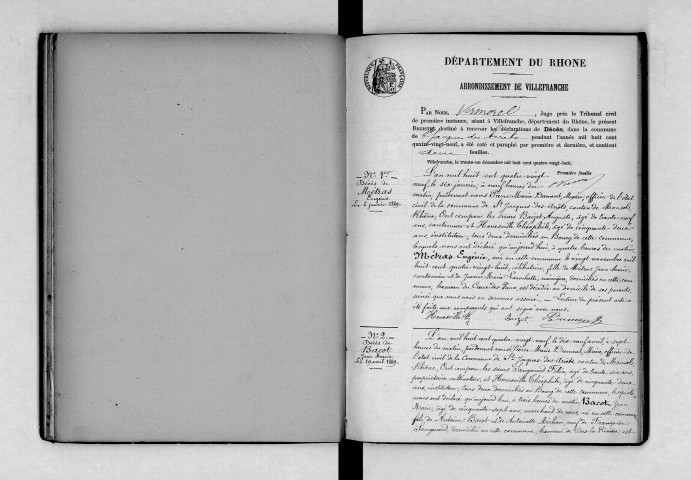 DÉPARTEMENT DU RHONE
ARRONDISSEMENT DE VILLEFRANCHE
PAR NOUS, Vermorel, Juge près le Tribunal civil
de première instance, séant à Villefranche, département du Rhône, le présent
REGISTRE destiné à recevoir les déclarations de Décès, dans la commune
de St Jacques des Arrêts pendant l'année mil huit cent
quatre-vingt-neuf, a été coté et paraphé par première et dernière, et contient
feuilles.
Villefranche, le trente-un décembre mil huit cent quatre-vingt-huit.
Première feuille
N° 1er
Décès de
Métras
Eugénie
Le 6 janvier 1889.
L'an mil huit cent quatre-vingt-
neuf, le six janvier, à neuf heures du
matin, pardevant nous Pierre Marie Dumont, Maire, officier de l'état
civil de la commune de St Jacques des Arrêts, canton de Monsols,
Rhône, Ont comparu les sieurs Auguste, âgé de trente-neuf
ans, cantonnier et Théophile, âgé de cinquante-deux
ans, instituteur, tous deux domiciliés au Bourg de cette commune,
lesquels nous ont déclaré qu'aujourd'hui, à quatre heures du matin,
Métras Eugénie, née en cette commune le vingt novembre mil
huit cent quatre-vingt-huit, célibataire, fille de Métras Jean Marie,
cantonnier et de Jeanne Marie, ménagère, domiciliés en cette com-
mune, hameau de, est décédée au domicile de ses parents
ainsi que nous nous en sommes assuré. — Lecture du présent acte a
été faite aux comparants qui ont signé avec nous.
N° 2
Décès de
Bacot
Jean Marie
Le 19 avril 1889.
L'an mil huit cent quatre-vingt-neuf, le dix-neuf avril, à sept
heures du matin pardevant nous Pierre Marie Dumont, Maire, officier de
l'état civil de la Commune de St Jacques des Arrêts, canton de Monsols,
Rhône, Ont comparu les sieurs Sangouard, âgé de trente-six ans,
propriétaire cultivateur, et Théophile, âgé de cinquante-deux
ans, instituteur, tous deux domiciliés au Bourg de cette commune, lesquels
nous ont déclaré qu'aujourd'hui, à trois heures du matin, Bacot Jean
Marie, âgé de cinquante-sept ans, marchand de vins, né en cette commune,
fils de Antoine Bacot et de Antoinette Michon, veuf de Françoise
Sangouard, domicilié en cette commune, hameau de la est